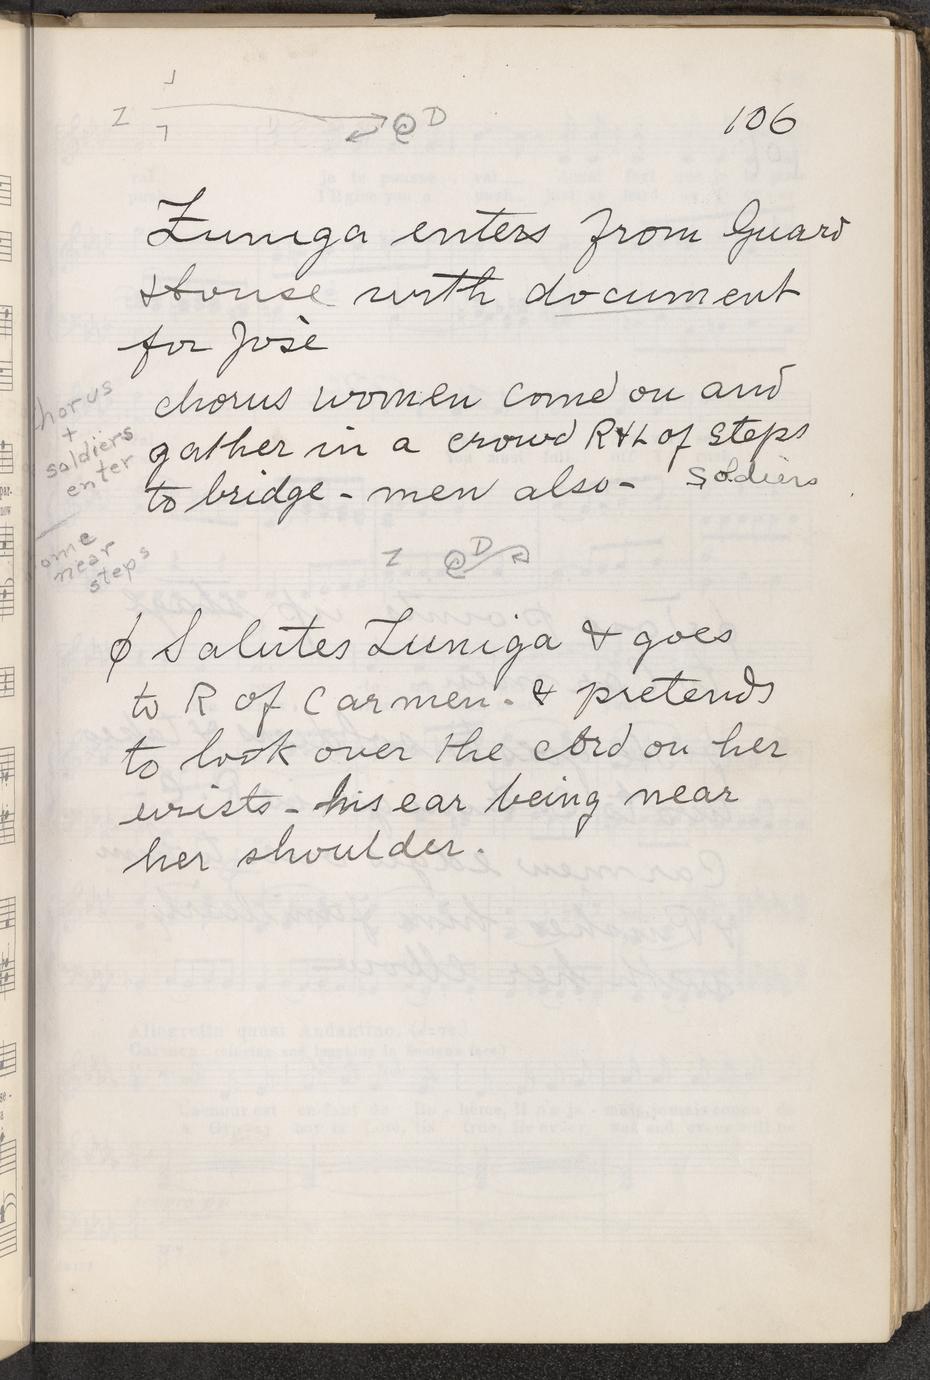 106
Z D
Zuniga enters from Guard
House with document
for José
chorus women come on and
gather in a crowd R & L of steps
to bridge - men also - Soldiers
horus
+
soldiers
enter
ome
near
steps
Z D
ϕ Salutes Zuniga & goes
to R of Carmen. & pretends
to look over the cord on her
wrists - his ear being near
her shoulder.